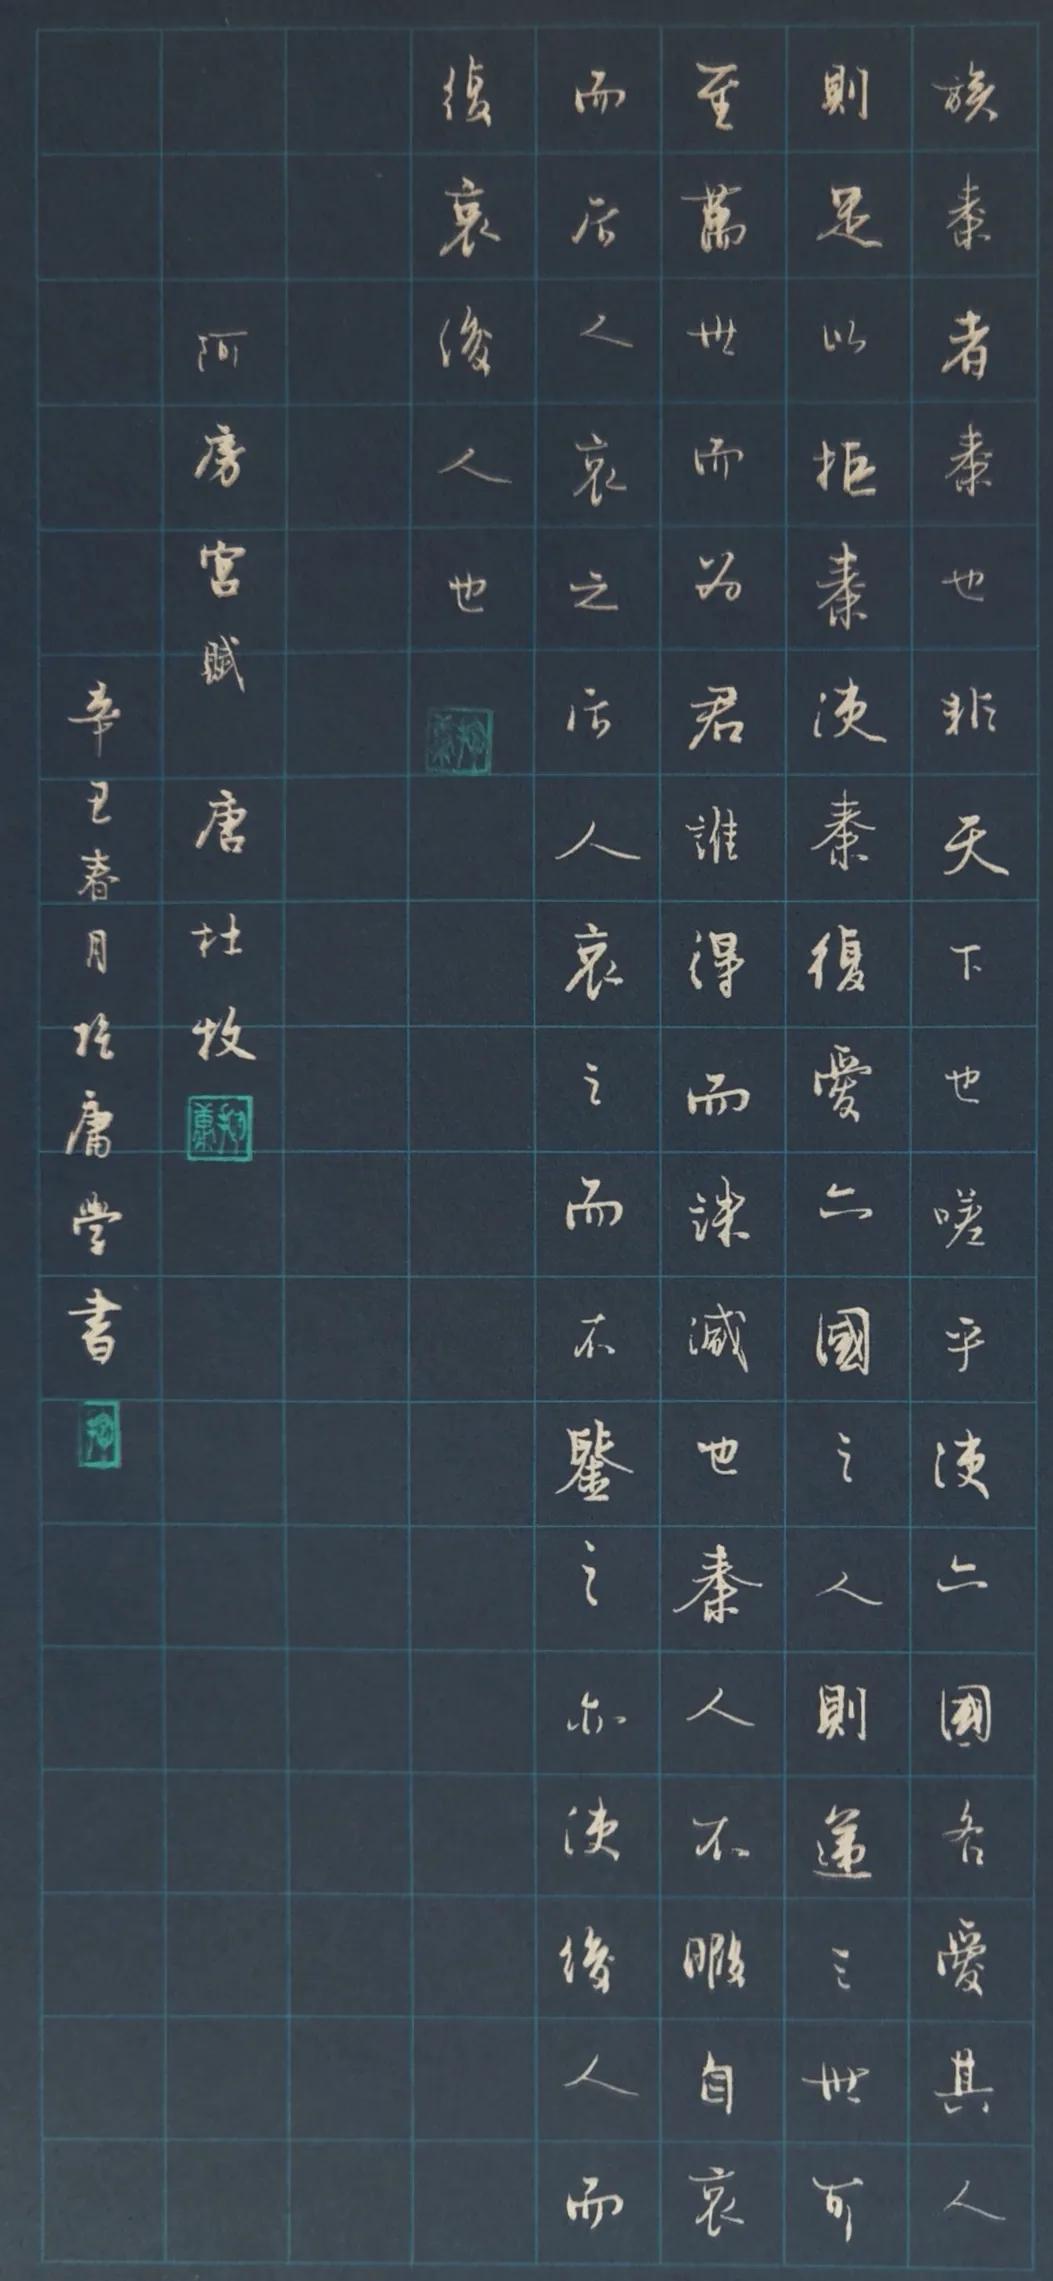 族秦者秦也非天下也嗟乎使六國各愛其人
則足以拒秦使秦復愛六國之人則遞三世可
至萬世而為君誰得而誅滅也秦人不暇自哀
而后人哀之后人哀之而不鑒之亦使後人而
復哀後人也
阿房宮賦 唐 杜牧
辛丑春月庸學書